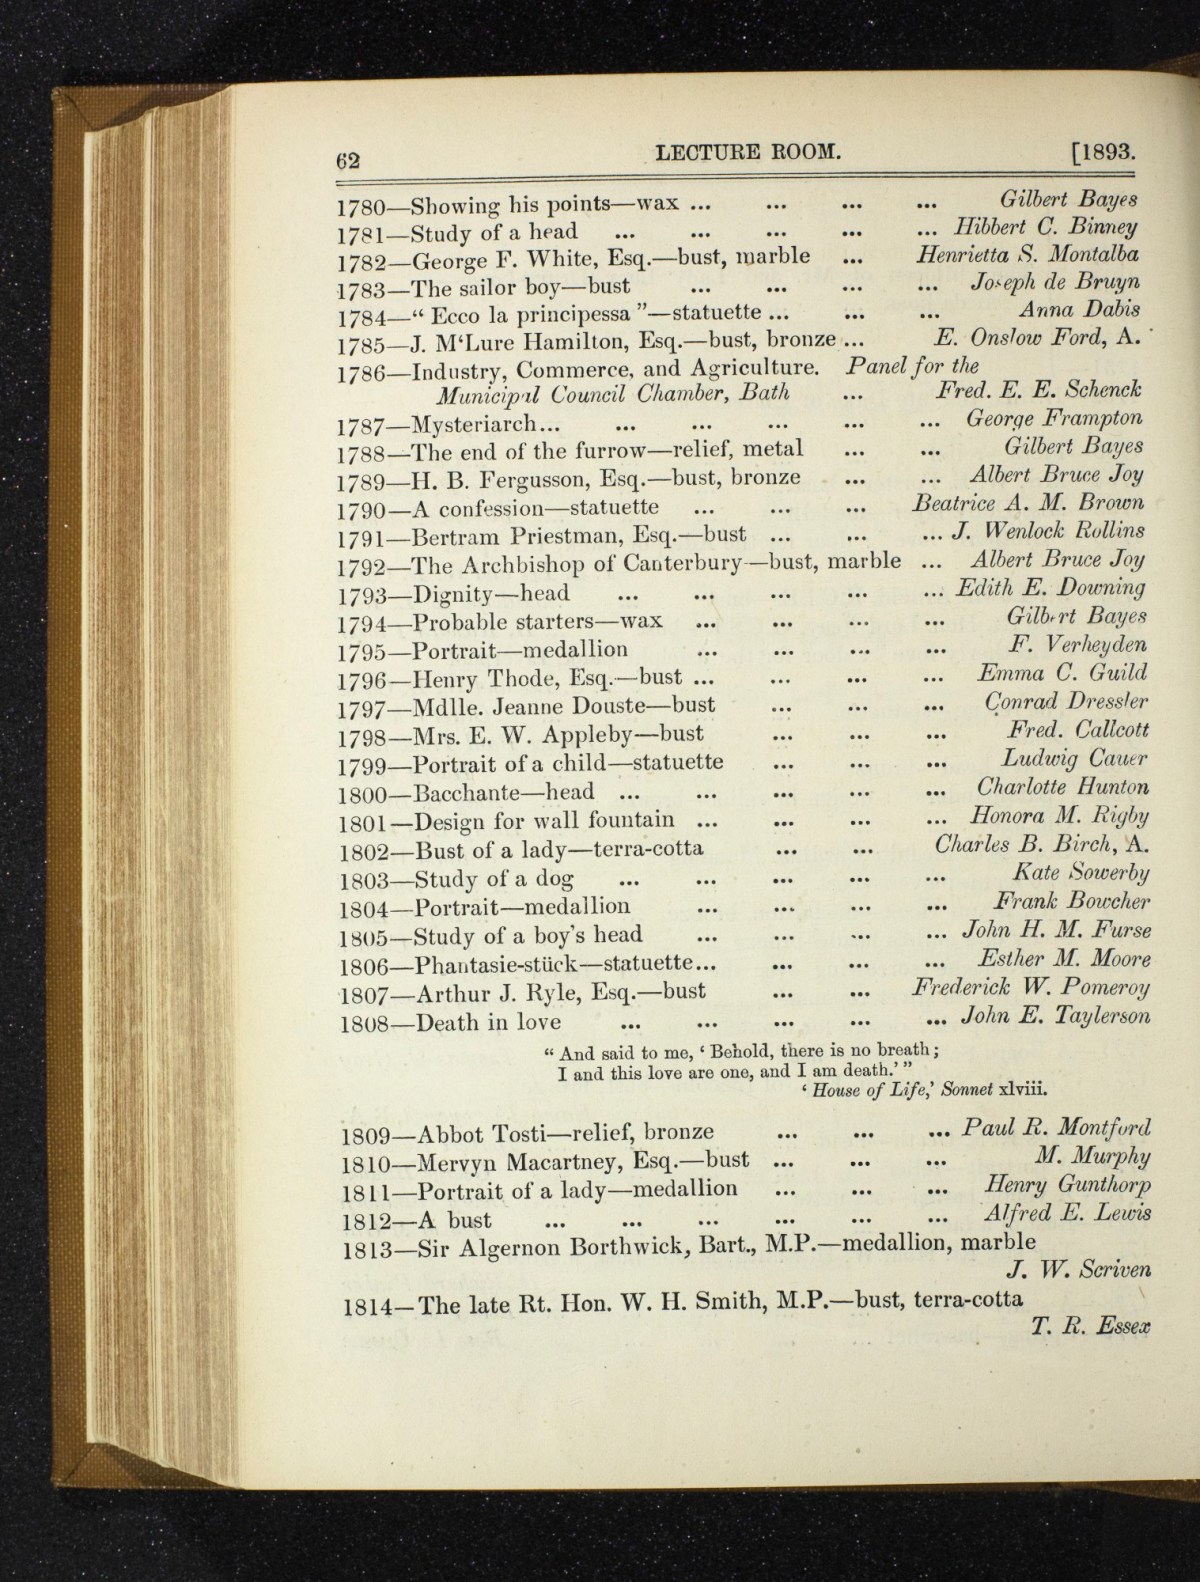 62 LECTURE ROOM. [1893.
1780—Showing his points—wax ... ... ... ... Gilbert Bayes
1781—Study of a head ... ... ... ... ... Hibbert C. Binney
1782—George F. White, Esq.—bust, marble ... Henrietta S. Montalba
1783—The sailor boy—bust ... ... ... ... Joseph de Bruyn
1784—“ Ecco la principessa ”—statuette ... ... ... Anna Dabis
1785—J. M‘Lure Hamilton, Esq.—bust, bronze ... E. Onslow Ford, A.
1786—Industry, Commerce, and Agriculture. Panel for the
Municipal Council Chamber, Bath ... Fred. E. E. Schenck
1787—Mysteriarch... ... ... ... ... ... George Frampton
1788—The end of the furrow—relief, metal ... ... Gilbert Bayes
1789—H. B. Fergusson, Esq.—bust, bronze ... ... Albert Bruce Joy
1790—A confession—statuette ... ... ... Beatrice A. M. Brown
1791—Bertram Priestman, Esq.—bust ... ... ... J. Wenlock Rollins
1792—The Archbishop of Canterbury—bust, marble ... Albert Bruce Joy
1793—Dignity—head ... ... ... ... ... Edith E. Downing
1794—Probable starters—wax ... ... ... ... Gilbert Bayes
1795—Portrait—medallion ... ... ... ... F. Verheyden
1796—Henry Thode, Esq.—bust ... ... ... ... Emma C. Guild
1797—Mdlle. Jeanne Douste—bust ... ... ... Conrad Dressler
1798—Mrs. E. W. Appleby—bust ... ... ... Fred. Callcott
1799—Portrait of a child—statuette ... ... ... Ludwig Cauer
1800—Bacchante—head ... ... ... ... ... Charlotte Hunton
1801—Design for wall fountain ... ... ... ... Honora M. Rigby
1802—Bust of a lady—terra-cotta ... ... Charles B. Birch, A.
1803—Study of a dog ... ... ... ... ... Kate Sowerby
1804—Portrait—medallion ... ... ... ... Frank Bowcher
1805—Study of a boy's head ... ... ... ... John H. M. Furse
1806—Phantasie-stück—statuette... ... ... ... Esther M. Moore
1807—Arthur J. Ryle, Esq.—bust ... ... Frederick W. Pomeroy
1808—Death in love ... ... ... ... ... John E. Taylerson
“ And said to me, ‘ Behold, there is no breath ;
I and this love are one, and I am death.’ ”
‘ House of Life,’ Sonnet xlviii.
1809—Abbot Tosti—relief, bronze ... ... ... Paul R. Montford
1810—Mervyn Macartney, Esq.—bust ... ... ... M. Murphy
1811—Portrait of a lady—medallion ... ... ... Henry Gunthorp
1812—A bust ... ... ... ... ... ... Alfred E. Lewis
1813—Sir Algernon Borthwick, Bart., M.P.—medallion, marble
J. W. Scriven
1814—The late Rt. Hon. W. H. Smith, M.P.—bust, terra-cotta
T. R. Essex